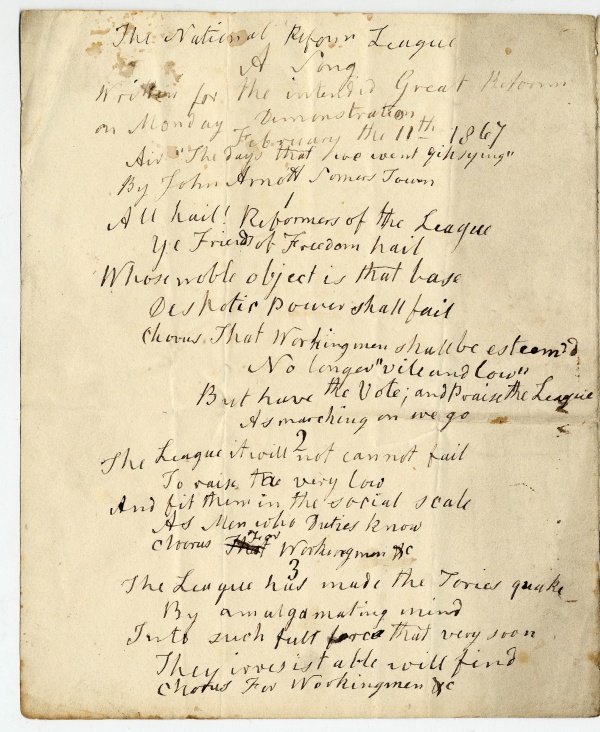 The National Reform League
A Song
Written for the intended Great Reform
Demonstration
on Monday February the 11th 1867
Air "The days that we went gipsying"
By John Arnott Somers Town
1
All hail! Reformers of the League
Ye Friends of Freedom hail
Whose noble object is that base
Despotic Power shall fail
Chorus That Workingmen shall be esteem'd
No longer "vile and low"
But have the Vote; and Praise the League
As marching on we go
2
The League it will not cannot fail
To raise the very low
And fit them in the social scale
As Men who Duties know
Chorus That For Workingmen &c
3
The League has made the Tories quake
By amalgamating mind
Into such full force that very soon
They irresistable will find
Chorus For Workingmen &c